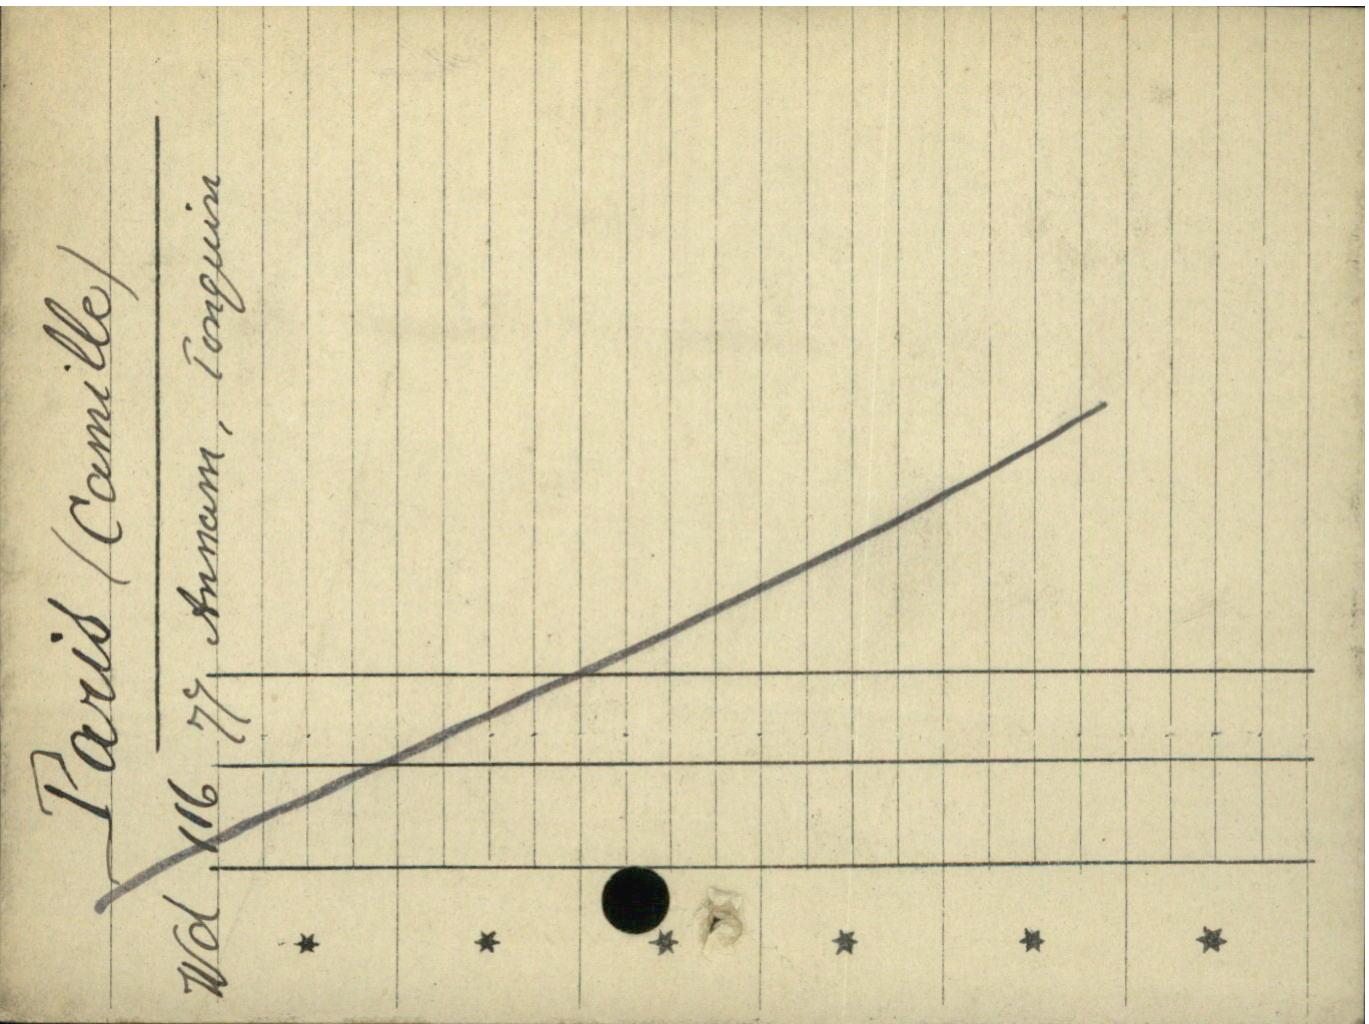 Paris (Camille)
Wd 116 77 Annam, Tonquin